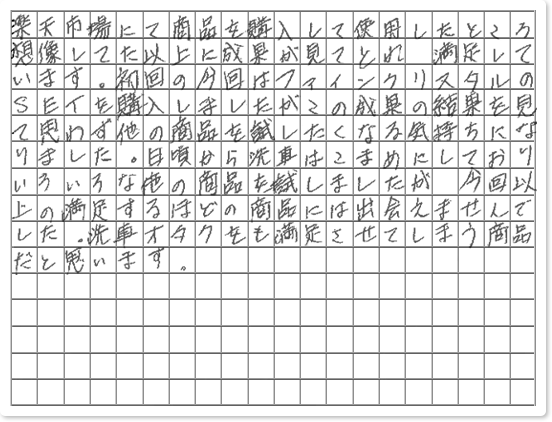 楽天市場にて商品を購入して使用したところ
想像してた以上に成果が見てとれ 満足して
います。初回の今回はファインクリスタルの
SETを購入しましたがこの成果の結果を見
て思わず他の商品を試したくなる気持ちにな
りました。日頃から洗車はこまめにしており
いろいろな他の商品を試しましたが 今回以
上の満足するほどの商品には出会えませんで
した。洗車オタクをも満足させてしまう商品
だと思います。